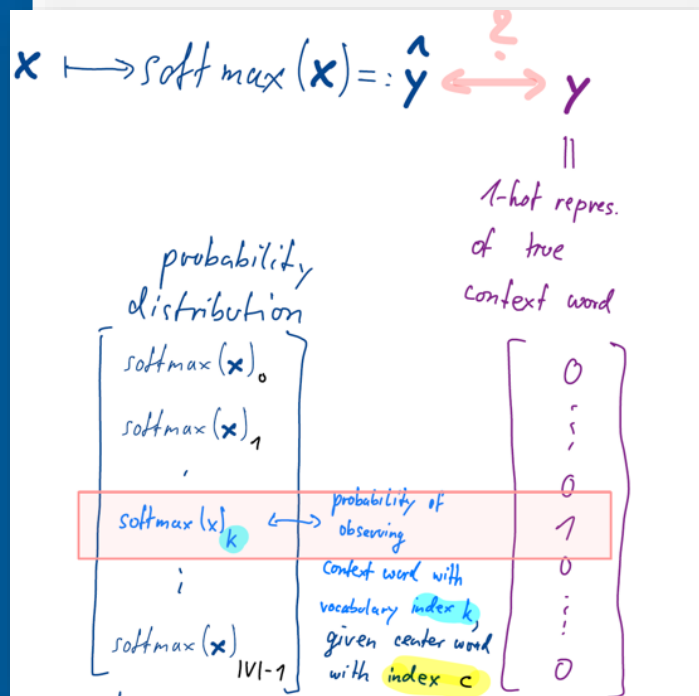 x ⟼ softmax(x) =: ŷ ⟷ y
?
||
1-hot repres.
of true
context word
probability
distribution
softmax(x)₀
softmax(x)₁
⋮
softmax(x)k
⋮
softmax(x)|V|-1
⟷ probability of
observing
context word with
vocabulary index k,
given center word
with index c
0
⋮
0
1
0
⋮
0